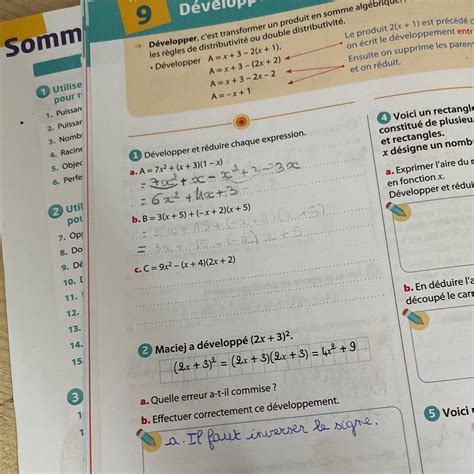 Somm
1 Utilise
pour r
1. Puissan
2. Puissar
3. Nomb
4. Racine
5. Objec
6. Perfe
2 Util
pou
7. Op
8. Do
9. Dé
10. D
11.
12.
13.
14.
15
3
9 Développ
→ Développer, c'est transformer un produit en somme algébrique
les règles de distributivité ou double distributivité.
• Développer A = x + 3 − 2(x + 1).
A = x + 3 − (2x + 2)
A = x + 3 − 2x − 2
A = −x + 1
Le produit 2(x + 1) est précédé d
on écrit le développement entr
Ensuite on supprime les paren
et on réduit.
1 Développer et réduire chaque expression.
a. A = 7x² + (x + 3)(1 − x)
= 7x² + x − x² + 3 − 3x
= 6x² + 4x + 3
b. B = 3(x + 5) + (−x + 2)(x + 5)
= 3x + 15 + (−x + 2)(x + 5)
= 3x + 15 + (−2) x + 5
c. C = 9x² − (x + 4)(2x + 2)
2 Maciej a développé (2x + 3)².
(2x + 3)² = (2x + 3)(2x + 3) = 4x² + 9
a. Quelle erreur a-t-il commise ?
b. Effectuer correctement ce développement.
a. Il faut inverser le signe.
4 Voici un rectangle
constitué de plusieu
et rectangles.
x désigne un nomb
a. Exprimer l'aire du r
en fonction x.
Développer et rédui
b. En déduire l'a
découpé le carr
5 Voici